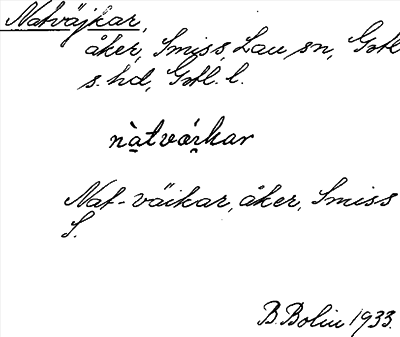 Natväjkar,
åker, Smiss, Lau sn, Gotl
s. hd, Gotl. l.
nàtvárkar
Nat-väikar, åker, Smiss
S.
B. Bolin 1933.